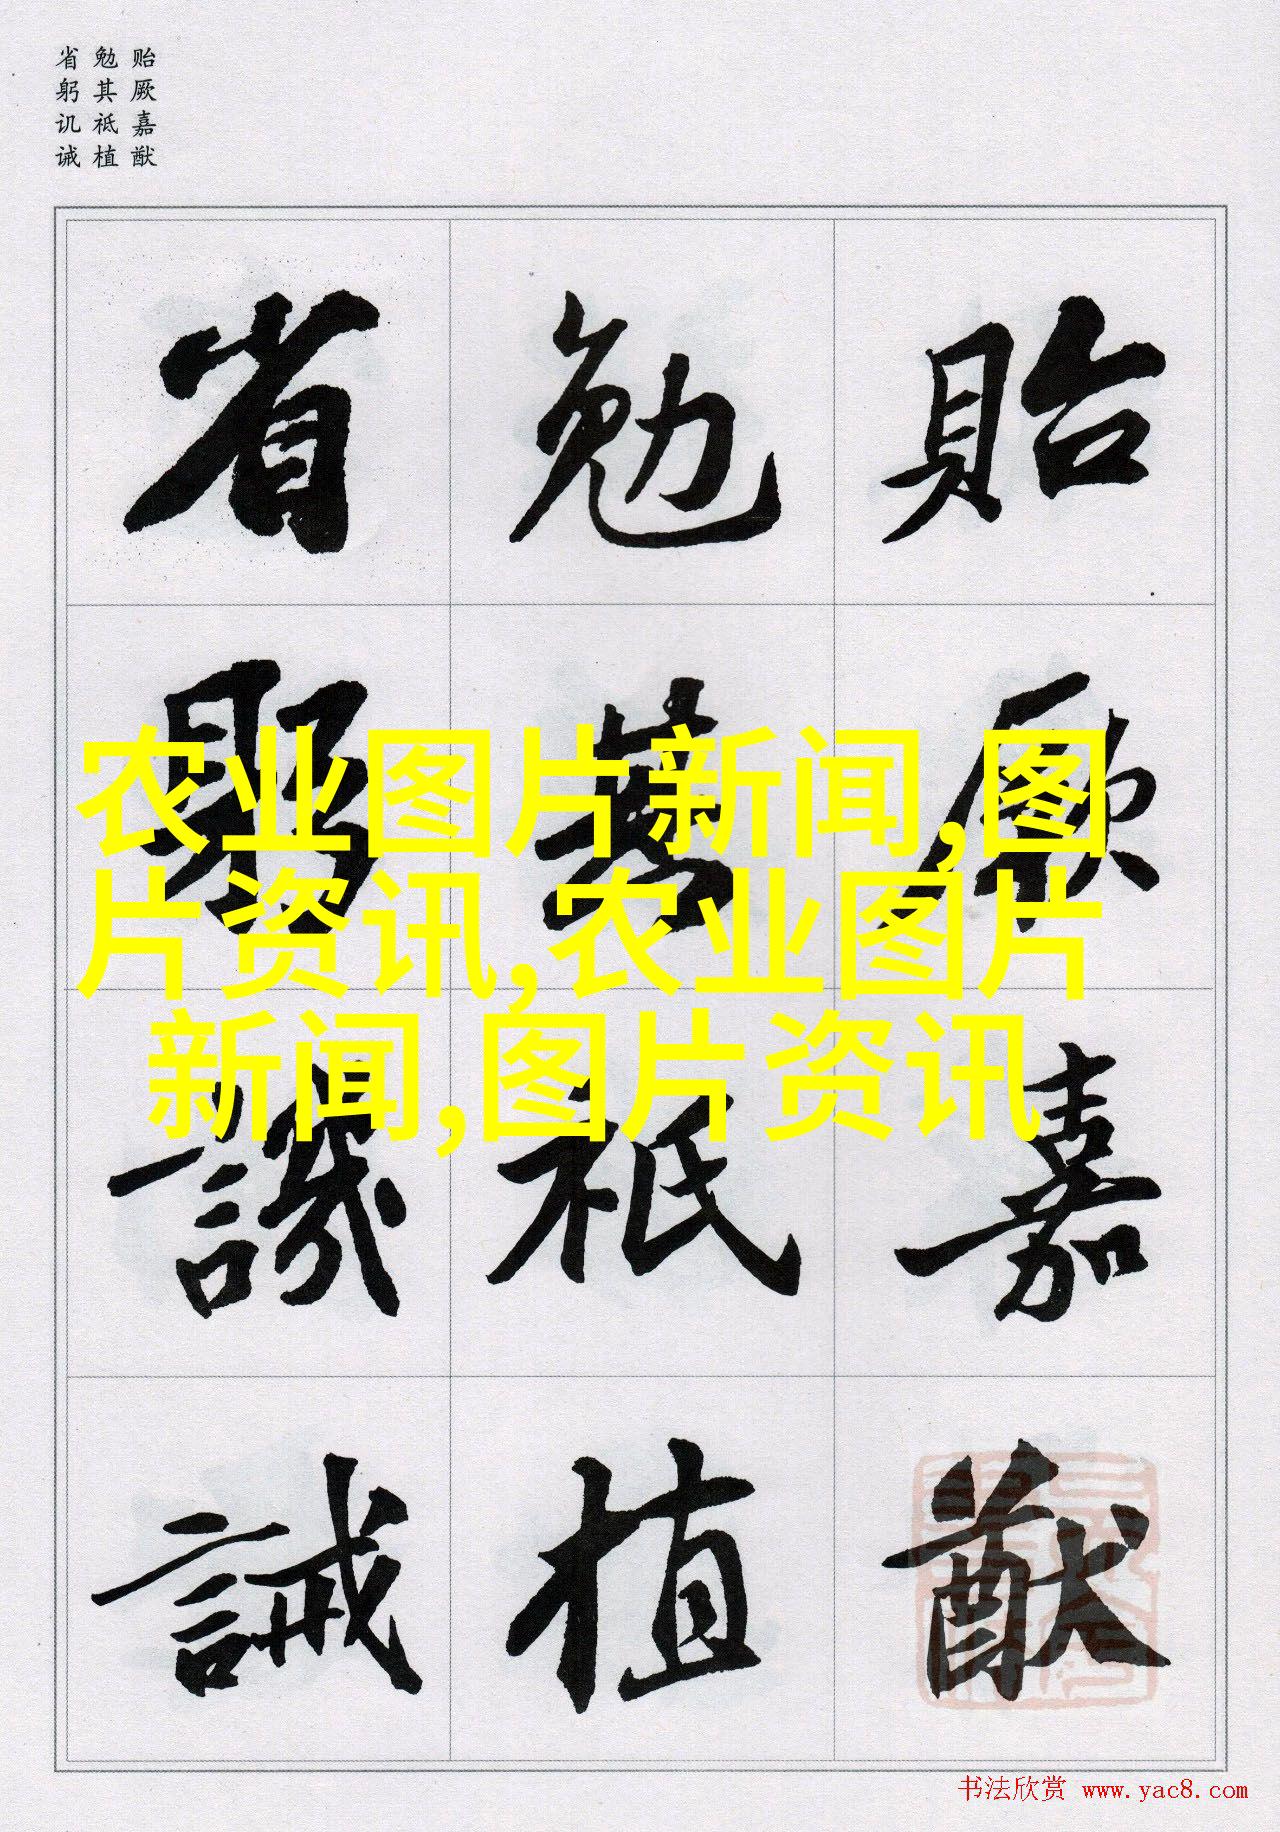 贻厥嘉猷
勉其祗植
省躬讥诫
貽厥嘉猷
勉其祗植
省躬譏誡
农业图片新闻,图
片资讯,农业图片
新闻,图片资讯
书法欣赏 www.yac8.com